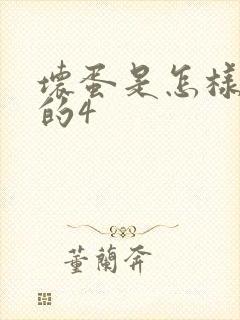 壞蛋是怎樣
的4
董蘭奔